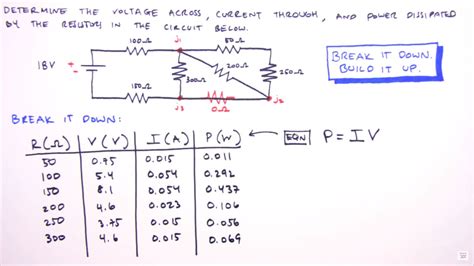 DETERMINE THE VOLTAGE ACROSS, CURRENT THROUGH, AND POWER DISSIPATED
BY THE RESISTORS IN THE CIRCUIT BELOW.
J1
100Ω
50Ω
18V
+
-
300Ω
200Ω
250Ω
150Ω
J3
0Ω
J2
BREAK IT DOWN.
BUILD IT UP.
BREAK IT DOWN:
R(Ω) V(V) I(A) P(W) EQN P = IV
50 0.75 0.015 0.011
100 5.4 0.054 0.292
150 8.1 0.054 0.437
200 4.6 0.023 0.106
250 3.75 0.015 0.056
300 4.6 0.015 0.069